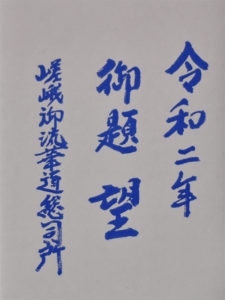 令和二年
御題 望
嵯峨御流華道総司所